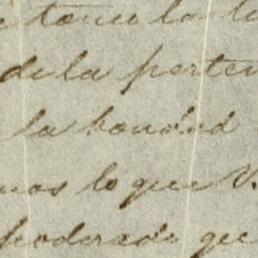 tomo la
de la perten
la bondad
mas lo que V.
poderado que